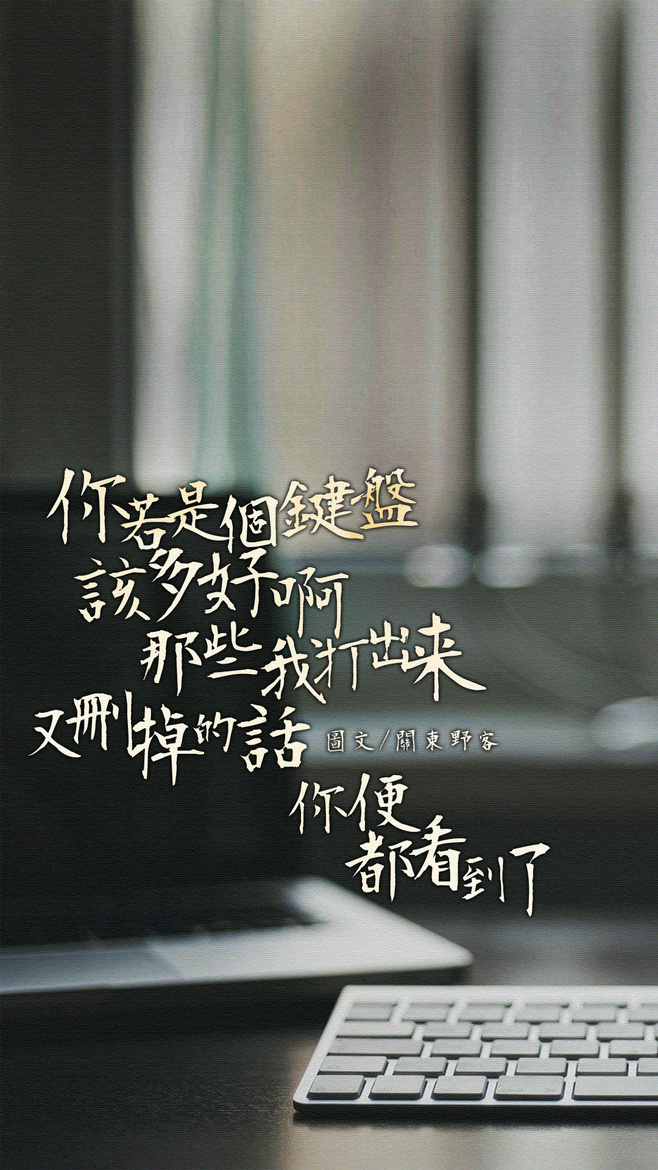 你若是個鍵盤
該多好啊
那些我打出来
又刪掉的話
圖文/關東野客
你便
都看到了